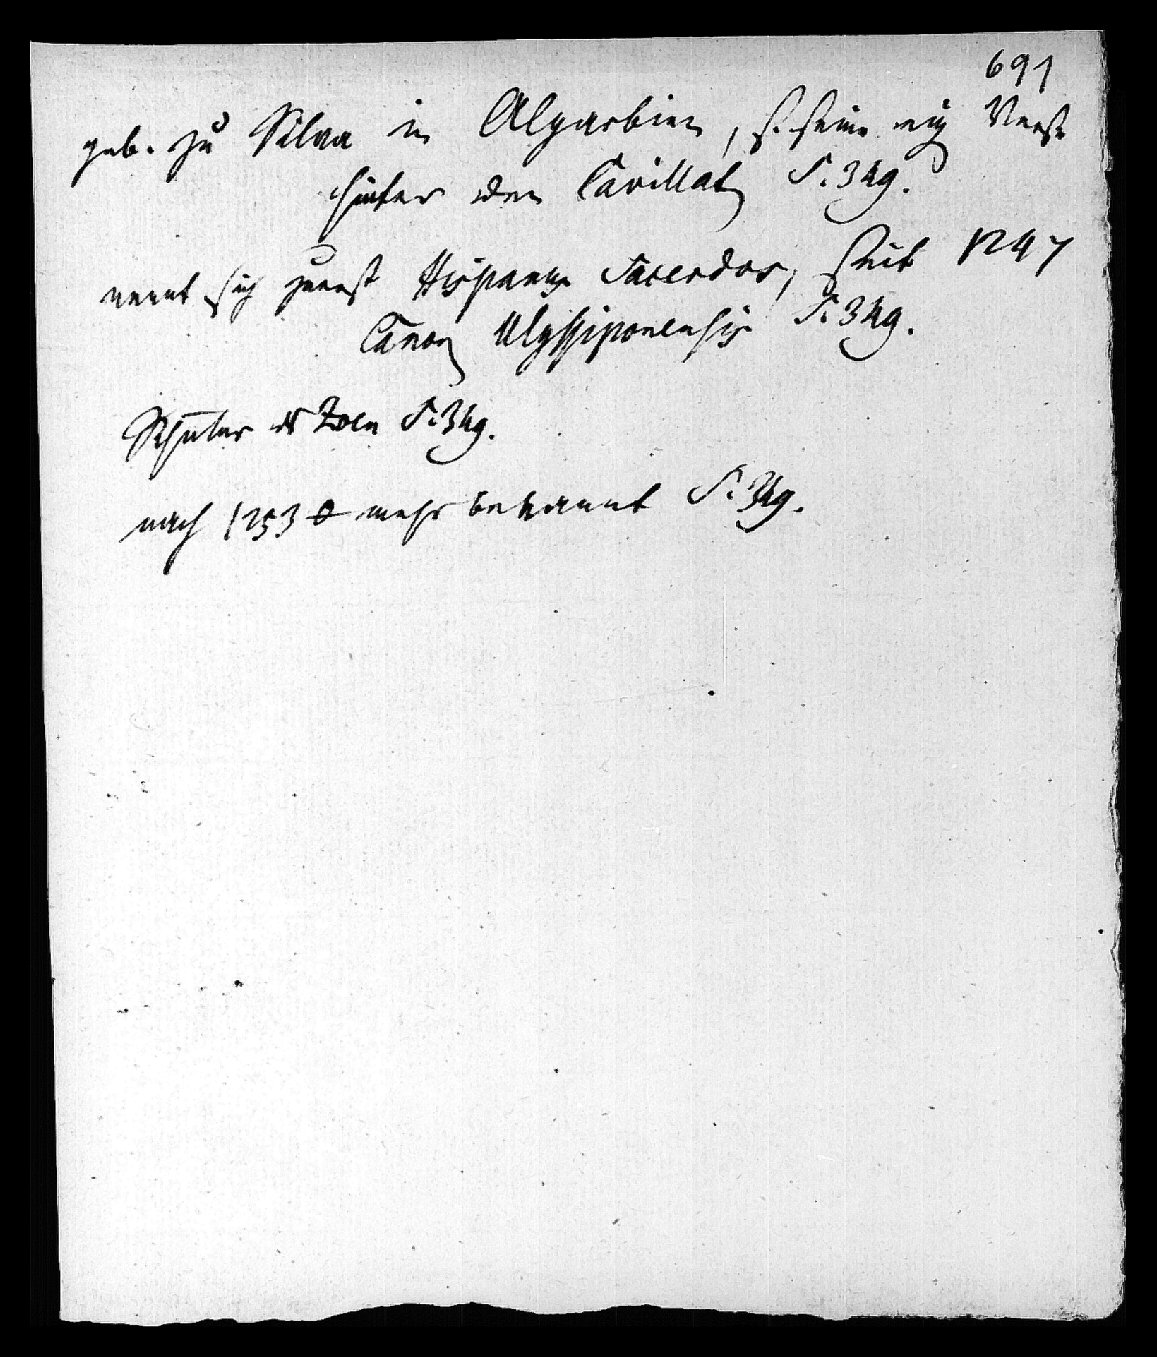 691
geb. zu Silva in Algarbien, s. seine eig Verse
hinter den Cavillat S. 349.
nennt sich zuerst Hispanus Sacerdos, seit 1247
Canon Ulyssiponensis S. 349.
Schüler d Zoen S. 349.
nach 1253 0 mehr bekannt S. 349.